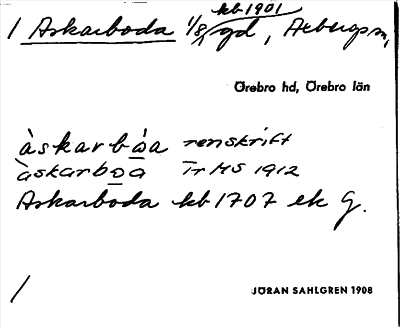 kb 1901
1 Askarboda 1/8 gd, Axbergs sn,
Örebro hd, Örebro län
àskarbòa renskrift
àskarbòa Tr HS 1912
Askarboda kb 1707 ek G.
/
JÖRAN SAHLGREN 1908